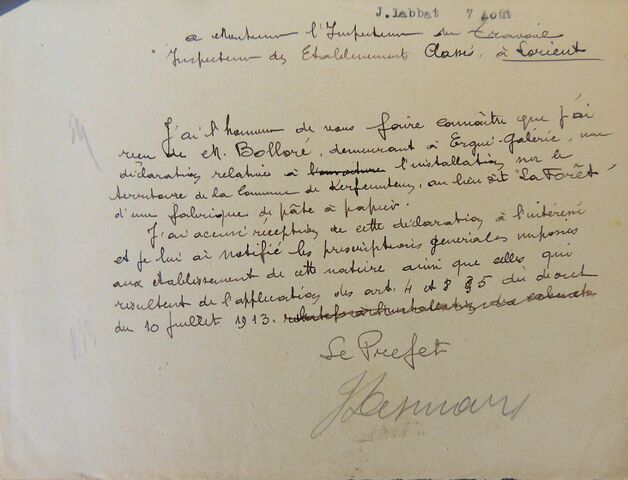 J. Labbat 7 Août
a Monsieur l'Inspecteur du Travail
Inspecteur des Etablissements Classés, à Lorient
J'ai l'honneur de vous faire connaître que j'ai
reçu de M. Bolloré, demeurant à Ergué-Gabéric, une
déclaration relative à l'ouverture l'installation, sur le
territoire de la Commune de Kerfeunteun, au lieu dit "La Forêt"
d'une fabrique de pâte à papier.
J'ai accusé réception de cette déclaration à l'intéressé
et je lui ai notifié les prescriptions générales imposées
aux établissement de cette nature ainsi que celles qui
resultent de l'application des art. 4 et 8 § 5 du décret
du 10 Juillet 1913.
Le Prefet